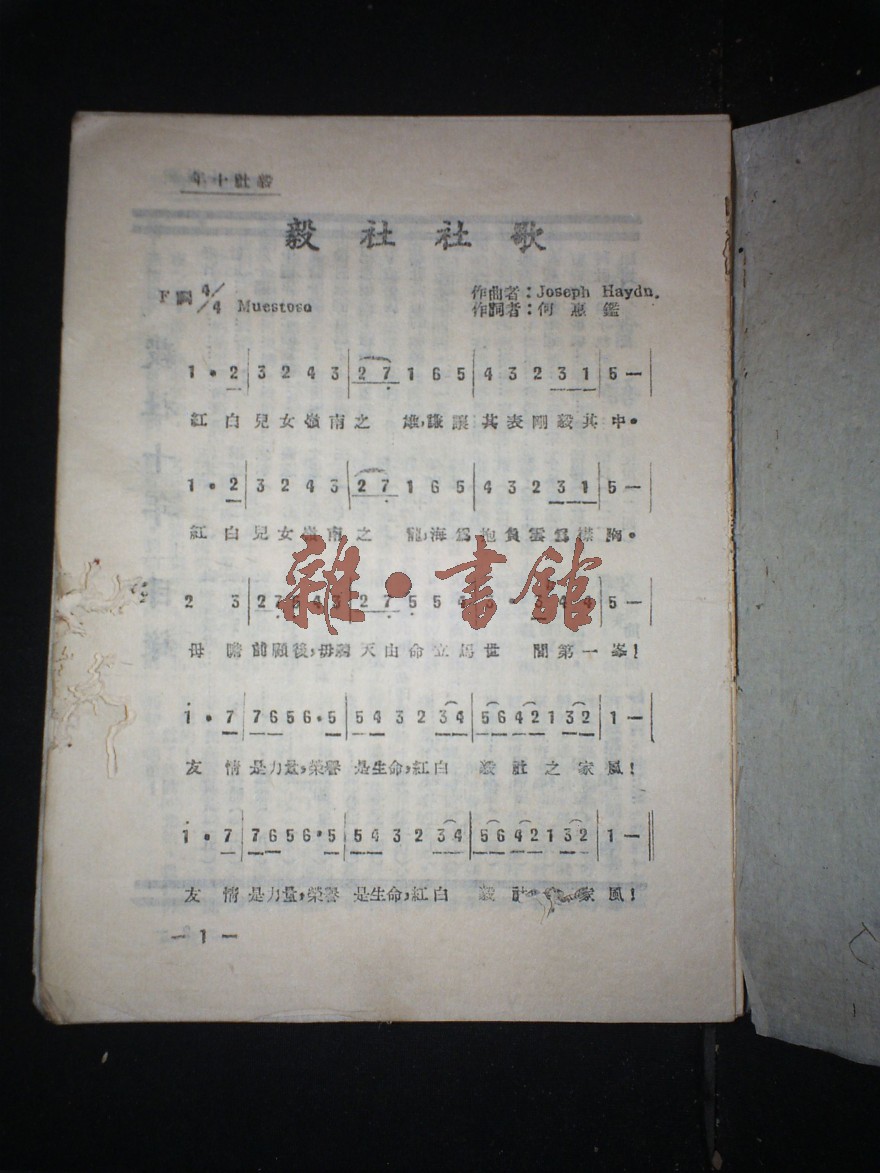 年十社毅
毅社社歌
F調 4/4 Muestoso
作曲者：Joseph Haydn.
作詞者：何惠鑑
1 • 2 | 3 2 4 3 | 2 7 1 6 5 | 4 3 2 3 1 | 5 —
紅白兒女嶺南之雄，謙讓其表剛毅其中。
1 • 2 | 3 2 4 3 | 2 7 1 6 5 | 4 3 2 3 1 | 5 —
紅白兒女嶺南之龍，海爲抱負雲爲襟胸。
雜•書館
毋瞻前顧後，毋聽天由命立馬世間第一峯！
1 • 7 | 7 6 5 6 • 5 | 5 4 3 2 3 4 | 5 6 4 2 1 3 2 | 1 —
友情是力量，榮譽是生命，紅白毅社之家風！
1 • 7 | 7 6 5 6 • 5 | 5 4 3 2 3 4 | 5 6 4 2 1 3 2 | 1 — ||
友情是力量，榮譽是生命，紅白毅社家風！
— 1 —